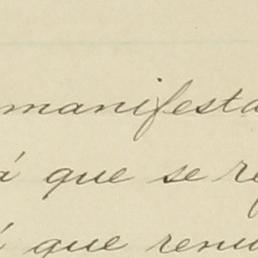 manifesta
á que se re
que renu